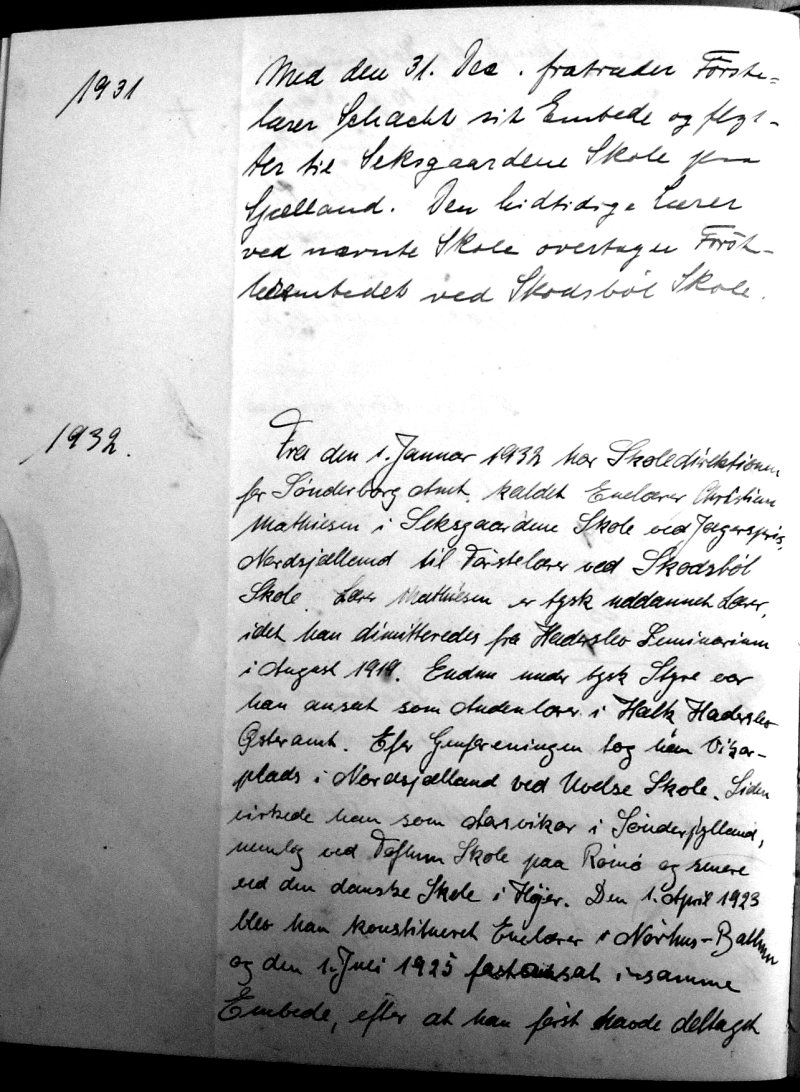 1931
Med den 31. Dec. fratræder Förste-
lærer Schacht sit Embede og flyt-
ter til Seksgaardene Skole paa
Sjælland. Den hidtidige Lærer
ved nævnte Skole overtager Först-
lærerembedet ved Skodsböl Skole.
1932.
Fra den 1. Januar 1932 har Skoledirektionen
for Sønderborg Amt kaldet Enelærer Christian
Mathiesen i Seksgaardene Skole ved Jægerspris,
Nordsjælland til Förstelærer ved Skodsböl
Skole. Lærer Mathiesen er tysk uddannet Lærer,
idet han dimitteredes fra Haderslev Seminarium
i August 1919. Endnu under tysk Styre var
han ansat som Andenlærer i Halk Haderslev
Østeramt. Efter Genforeningen tog han Vikar-
plads i Nordsjælland ved Uvelse Skole. Siden
virkede han som Aarsvikar i Sønderjylland,
nemlig ved Toftum Skole paa Römö og senere
ved den danske Skole i Højer. Den 1. April 1923
blev han konstitueret Enelærer i Nörhus-Ballum
og den 1. Juli 1925 fastansat i samme
Embede, efter at han først havde deltaget